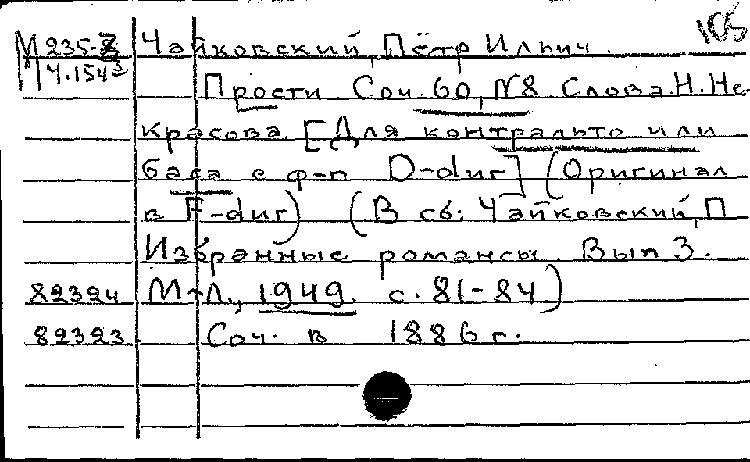 105
М 235-2 Чайковский, Пётр Ильич.
Ч.154³ Прости Соч. 60, №8 Слова Н. Не-
красова [Для контральто или
баса с ф-п D-dur] (Оригинал
в F-dur) (В сб: Чайковский, П
Избранные романсы. Вып 3.
82324 М-Л., 1949. с. 81-84)
82323 Соч. в 1886 г.